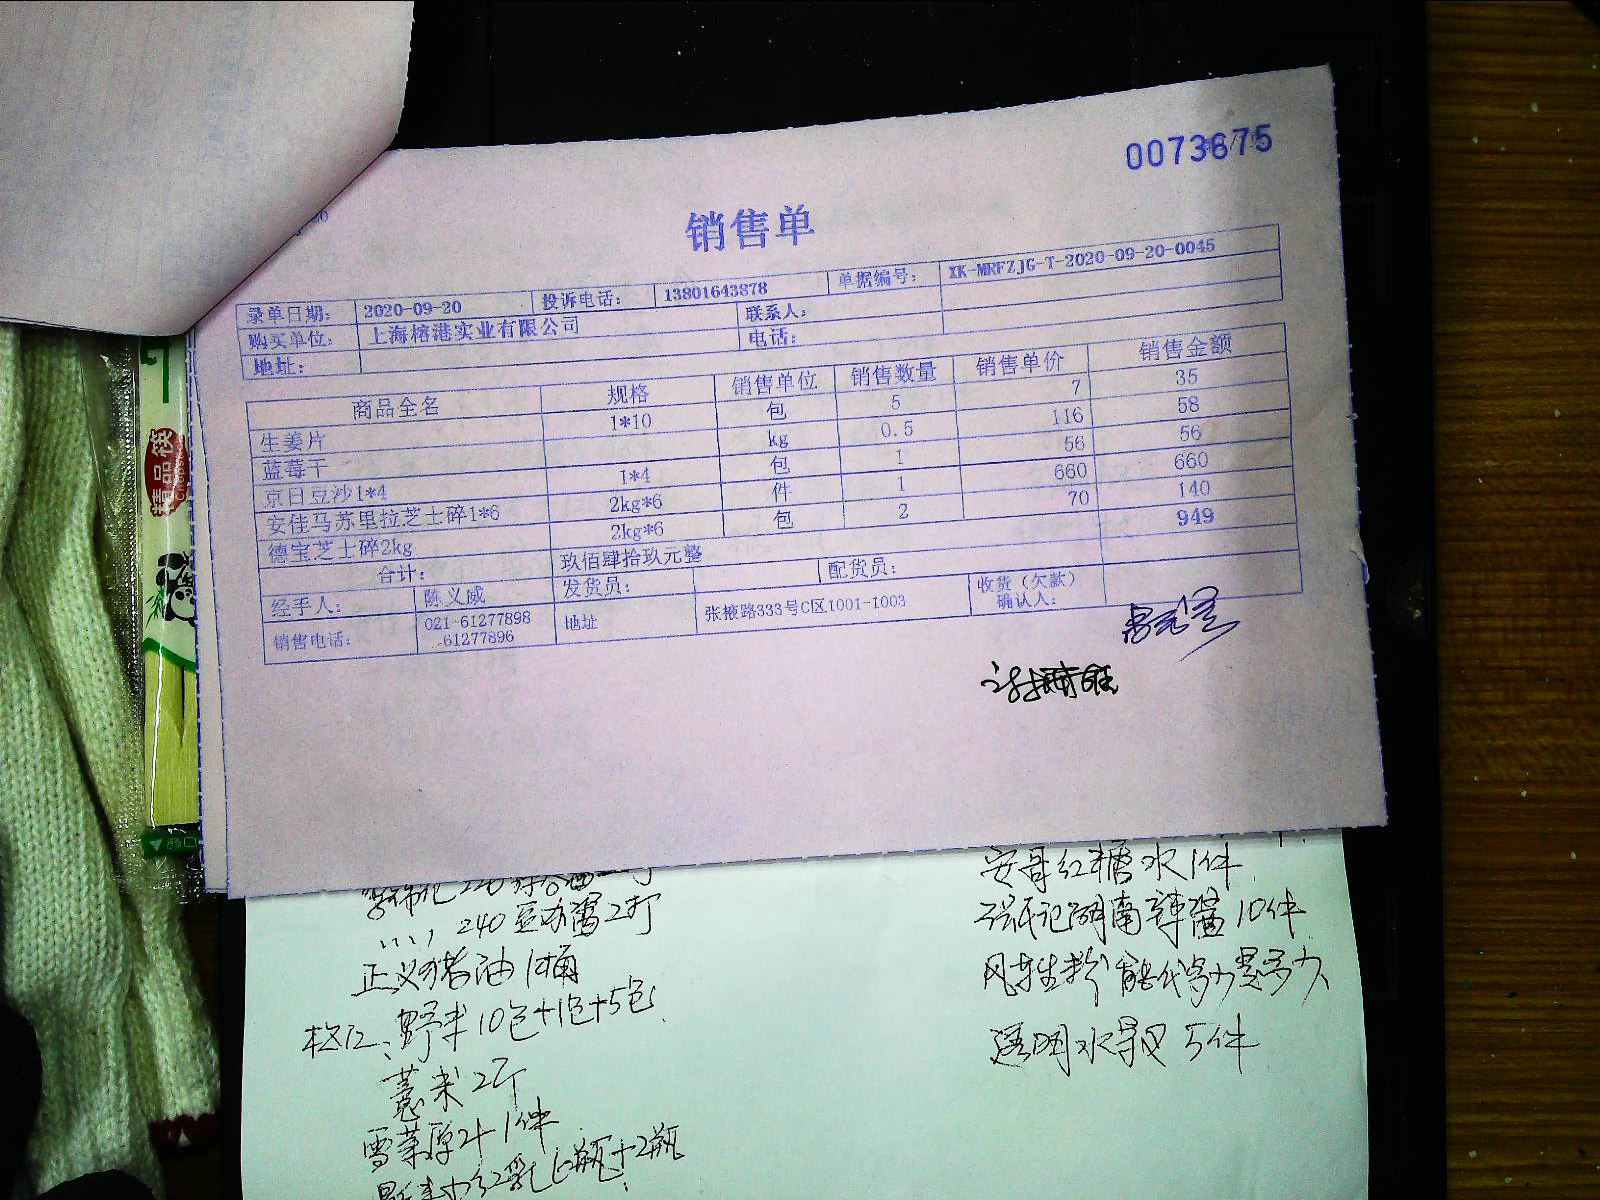 0073675
销售单
录单日期： 2020-09-20 投诉电话： 13801643878 单据编号： XK-MRFZJG-T-2020-09-20-0045
购买单位： 上海榕港实业有限公司 联系人：
地址： 电话：
商品全名 规格 销售单位 销售数量 销售单价 销售金额
生姜片 1*10 包 5 7 35
蓝莓干 kg 0.5 116 58
京日豆沙1*4 1*4 包 1 56 56
安佳马苏里拉芝士碎1*6 2kg*6 件 1 660 660
德宝芝士碎2kg 2kg*6 包 2 70 140
合计： 玖佰肆拾玖元整 949
经手人： 陈义威 发货员： 配货员： 收货（欠款）确认人：
销售电话： 021-61277898 61277896 地址 张掖路333号C区1001-1003
精品筷
240 2打
正义猪油1桶
野米10包+1包+5包
薏米2斤
1件
红乳 6瓶+2瓶
安哥红糖水1件
湖南辣酱10件
5件